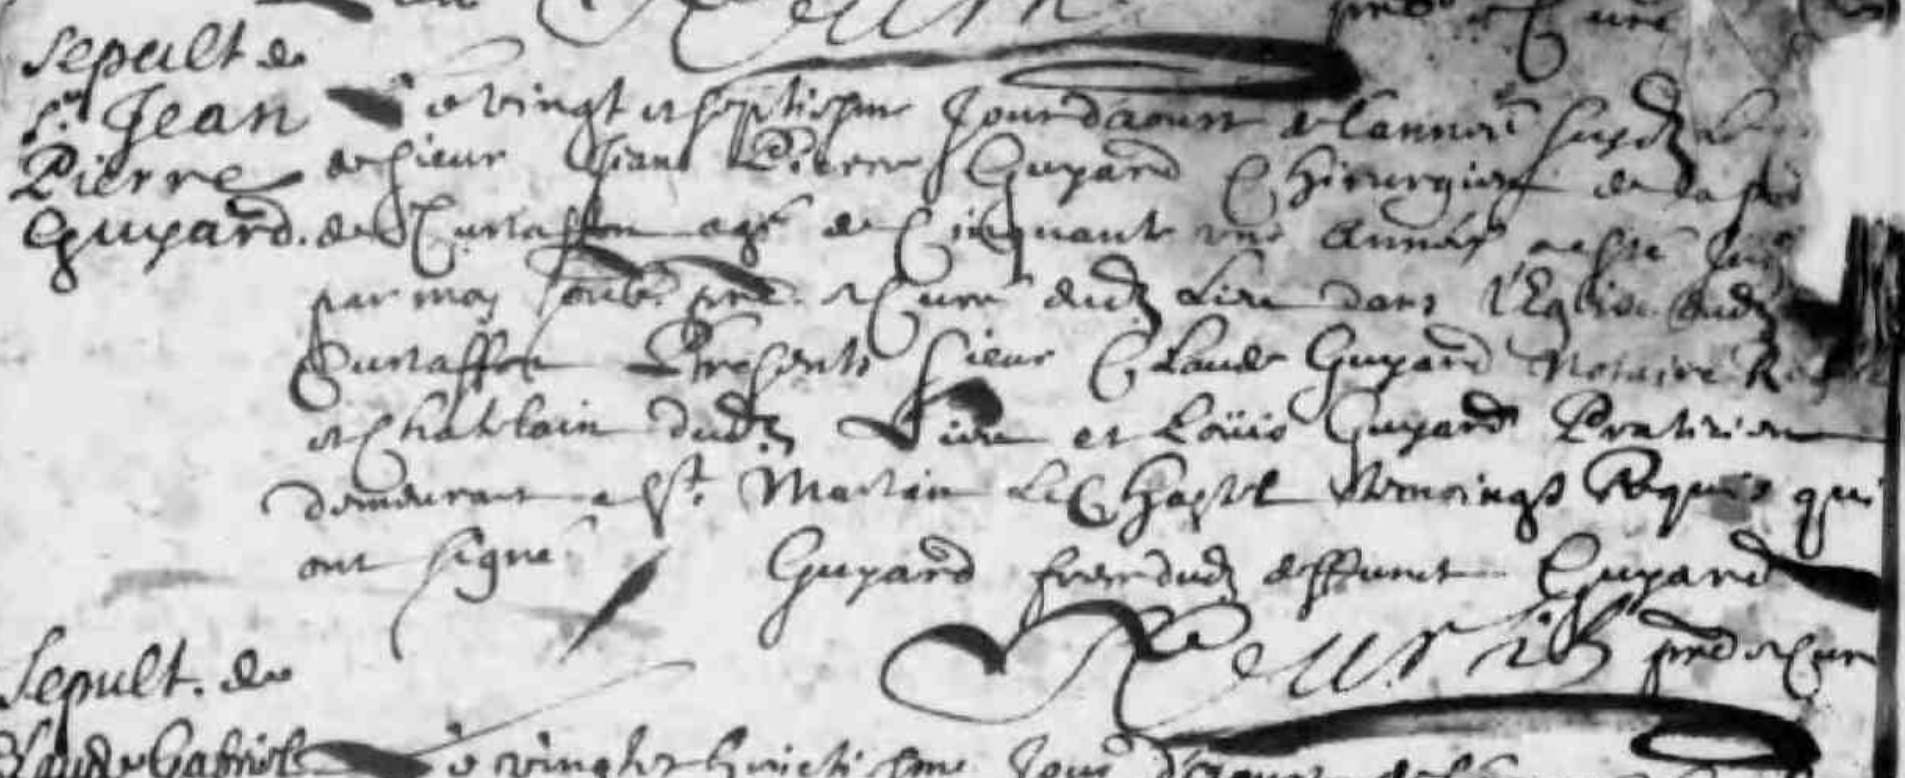 Sepult de
Sr. Jean
Pierre
Guyard.
pnr et Curé
Le vingt et septiesme Jour d'aoust de l'année susdz Le
de sieur Jean Pierre Guyard Chirurgien de
de Curtaffon agé de Cinquante une années a esté
par moy soub. pnr. et Curé dudz Lieu dans l'Eglise dudz
Curtaffon Presents sieur Claude Guyard Notaire
et Chatelain dudz Lieu et Loüis Guyard Praticien
demeurant a St. Martin Le Chastel temoings Requis qui
ont signé
Guyard frere dudz deffunct Guyard
pnr et Curé
Sepult. de
Claude Gabriel
Le vingt et huictiesme Jour d'aoust